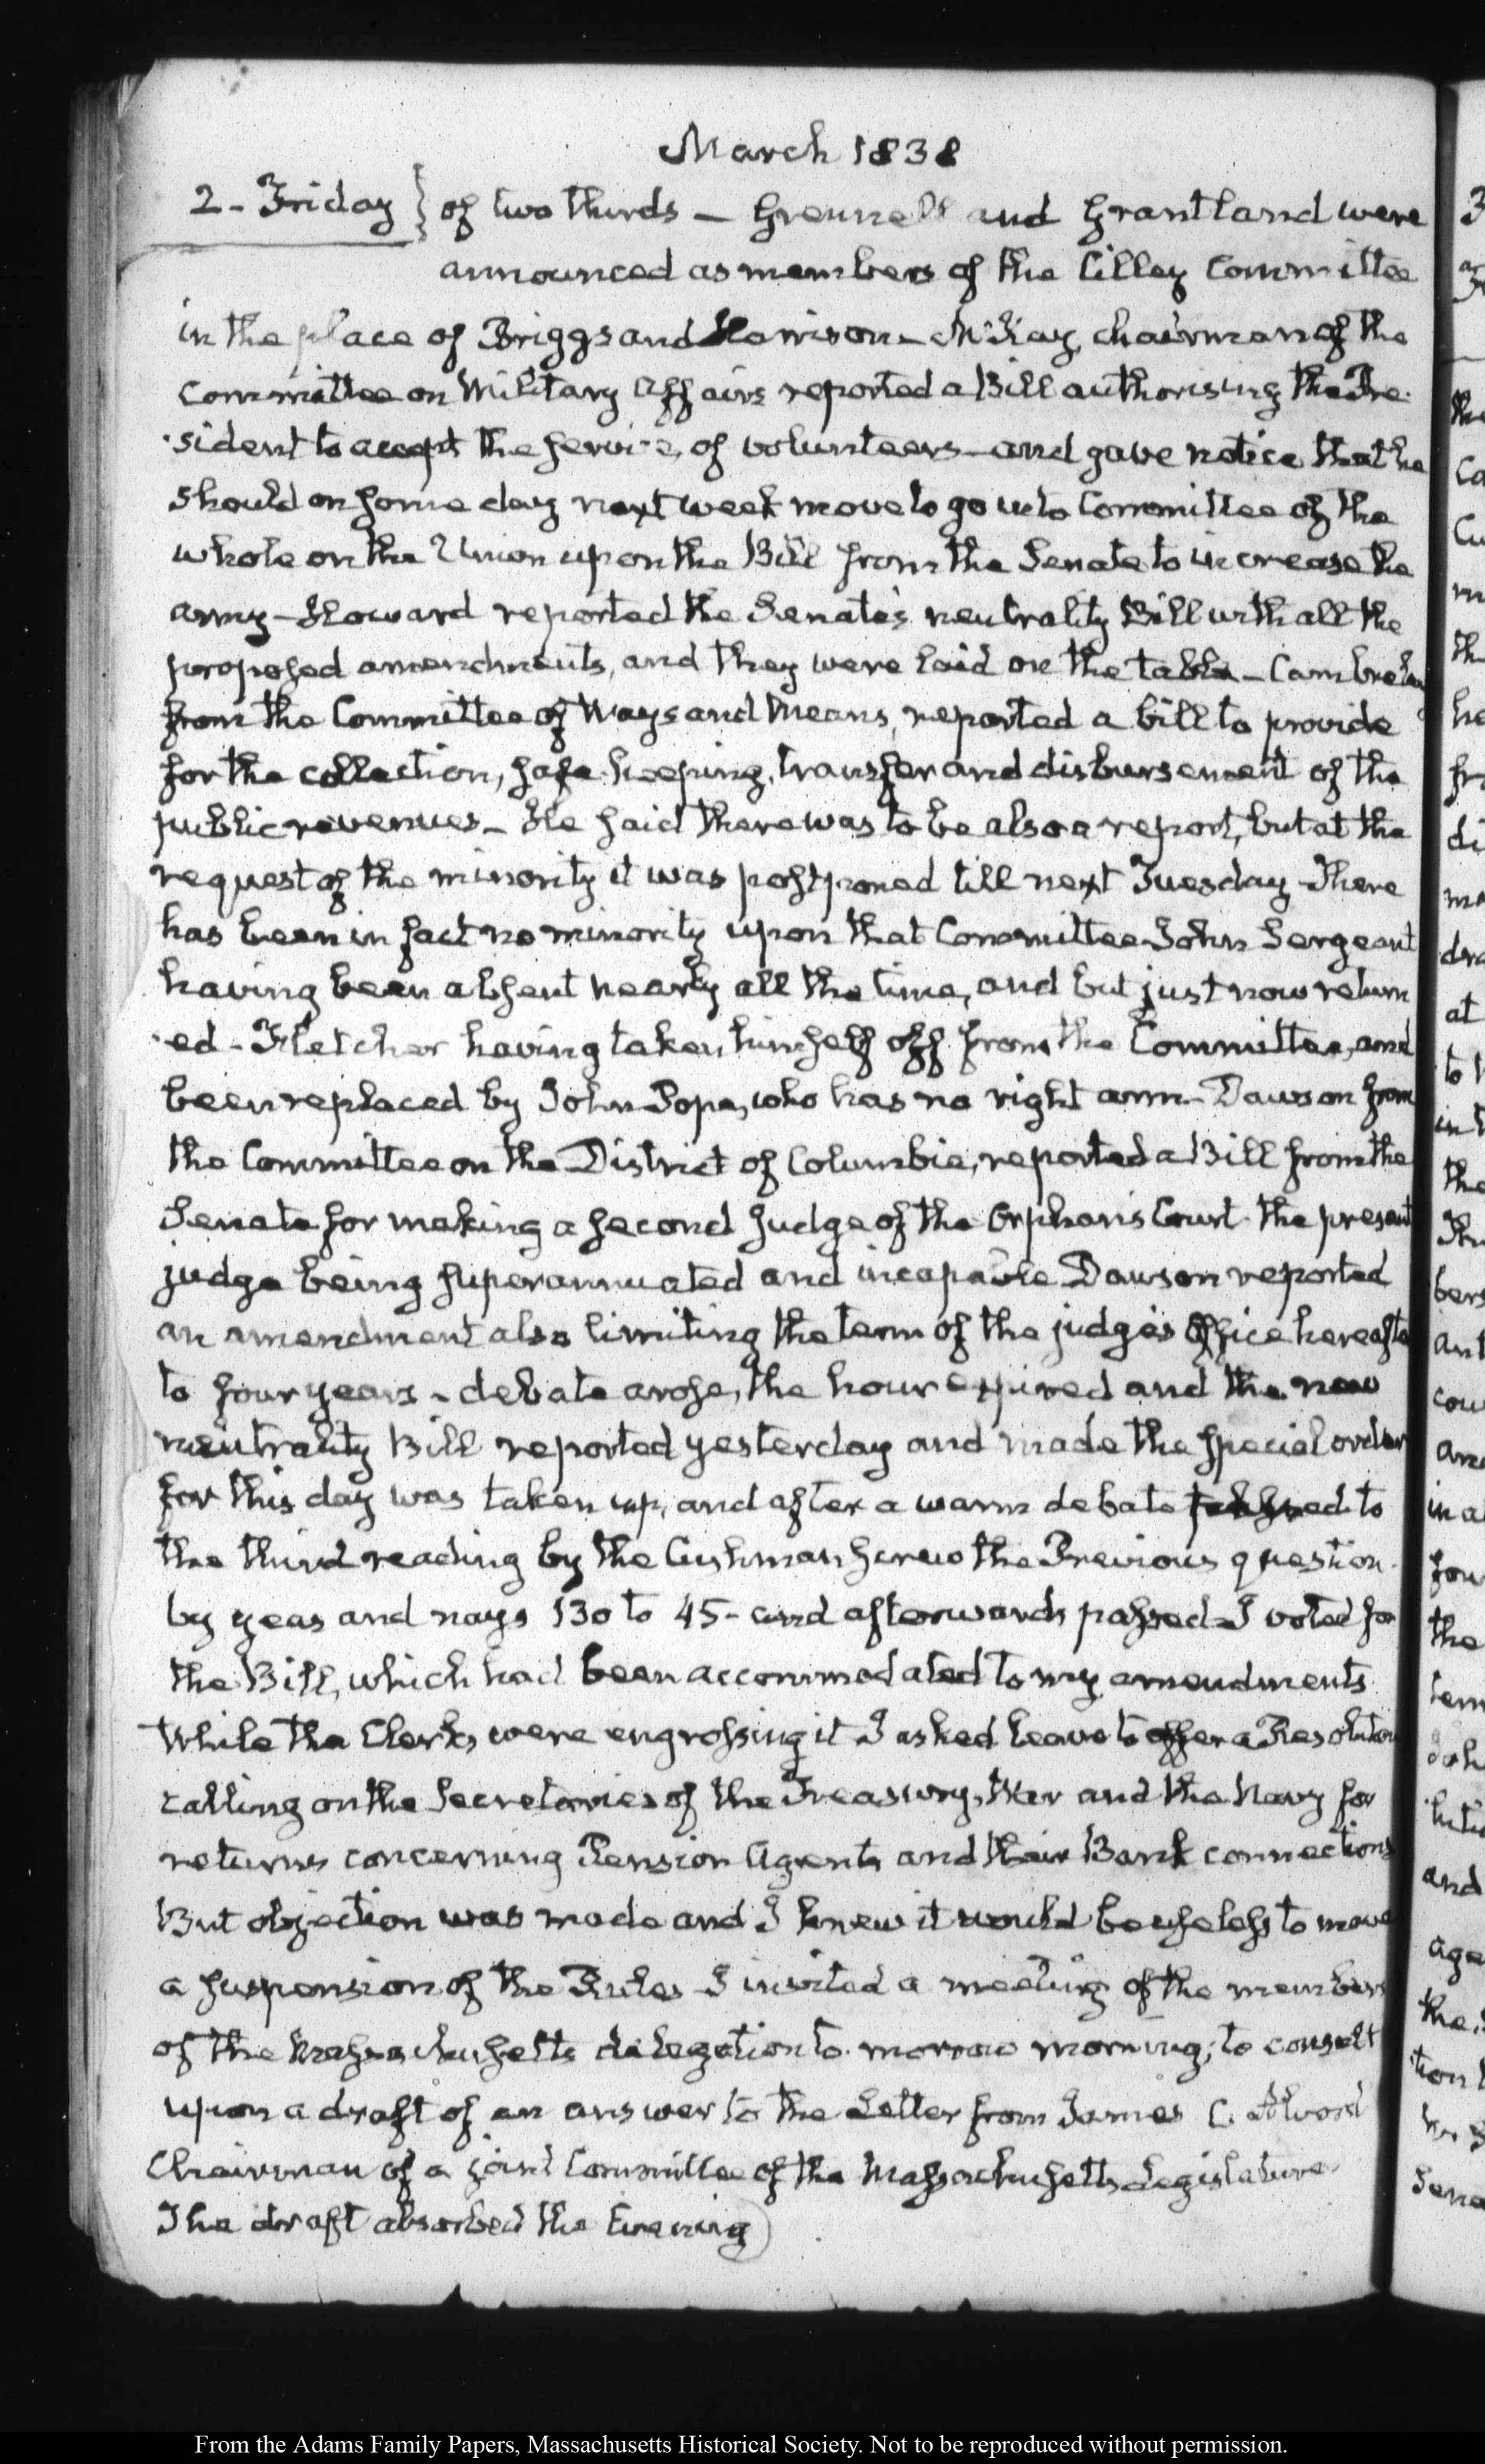 March 1838
2 - Friday } of two thirds — Grennell and Grantland were
announced as members of the Cilley Committee
in the place of Briggs and Harrison — McKay, chairman of the
Committee on Military Affairs reported a Bill authorising the Pre-
-sident to accept the service of volunteers — and gave notice that he
should on some day next week move to go into Committee of the
whole on the Union upon the Bill from the Senate to increase the
army — Howard reported the Senate's neutrality Bill with all the
proposed amendments, and they were laid on the table — Cambreleng
from the Committee of Ways and Means, reported a bill to provide
for the collection, safe-keeping, transfer and disbursement of the
public revenues — He said there was to be also a report, but at the
request of the minority it was postponed till next Tuesday — There
has been in fact no minority upon that Committee John Sergeant
having been absent nearly all the time, and but just now return
-ed — Fletcher having taken himself off from the Committee, and
been replaced by John Pope, who has no right arm — Dawson from
the Committee on the District of Columbia, reported a Bill from the
Senate for making a second Judge of the Orphan's Court the present
judge being superannuated and incapable Dawson reported
an amendment also limiting the term of the judge's Office hereafter
to four years — debate arose, the hour expired and the new
neutrality Bill reported yesterday and made the special order
for this day was taken up, and after a warm debate to
the third reading by the Cushman screw the Previous question
by yeas and nays 130 to 45 — and afterwards passed — I voted for
the Bill, which had been accommodated to my amendments
While the Clerks were engrossing it I asked leave to offer a Resolution
calling on the Secretaries of the Treasury, War and the Navy for
returns concerning Pension Agents and their Bank connections
But objection was made and I knew it would be useless to move
a suspension of the Rules — I invited a meeting of the members
of the Massachusetts delegation to-morrow morning; to consult
upon a draft of an answer to the Letter from James C. Alvord
Chairman of a joint Committee of the Massachusetts Legislature
The draft absorbed the Evening
From the Adams Family Papers, Massachusetts Historical Society. Not to be reproduced without permission.